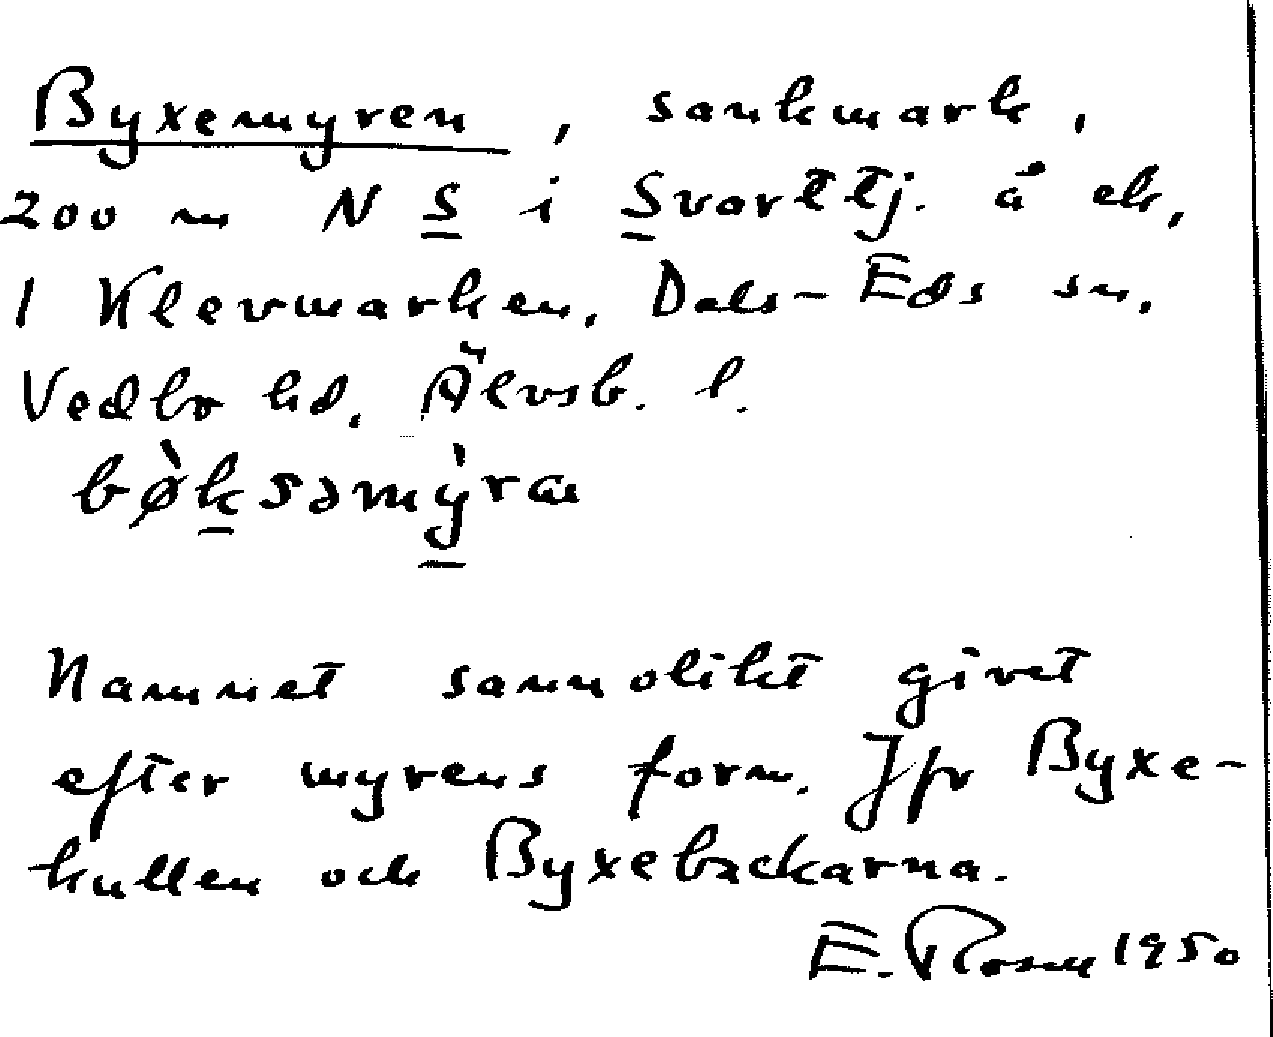 Byxemyren, sankmark,
200 m N S i Svarttj. å ek,
1 Klevmarken, Dals-Eds sn,
Vedbo hd, Älvsb. l.
bø̀ksəmỳræ
Namnet sannolikt givet
efter myrens form. Jfr Byxe-
kullen och Byxebackarna.
E. Rosm 1950